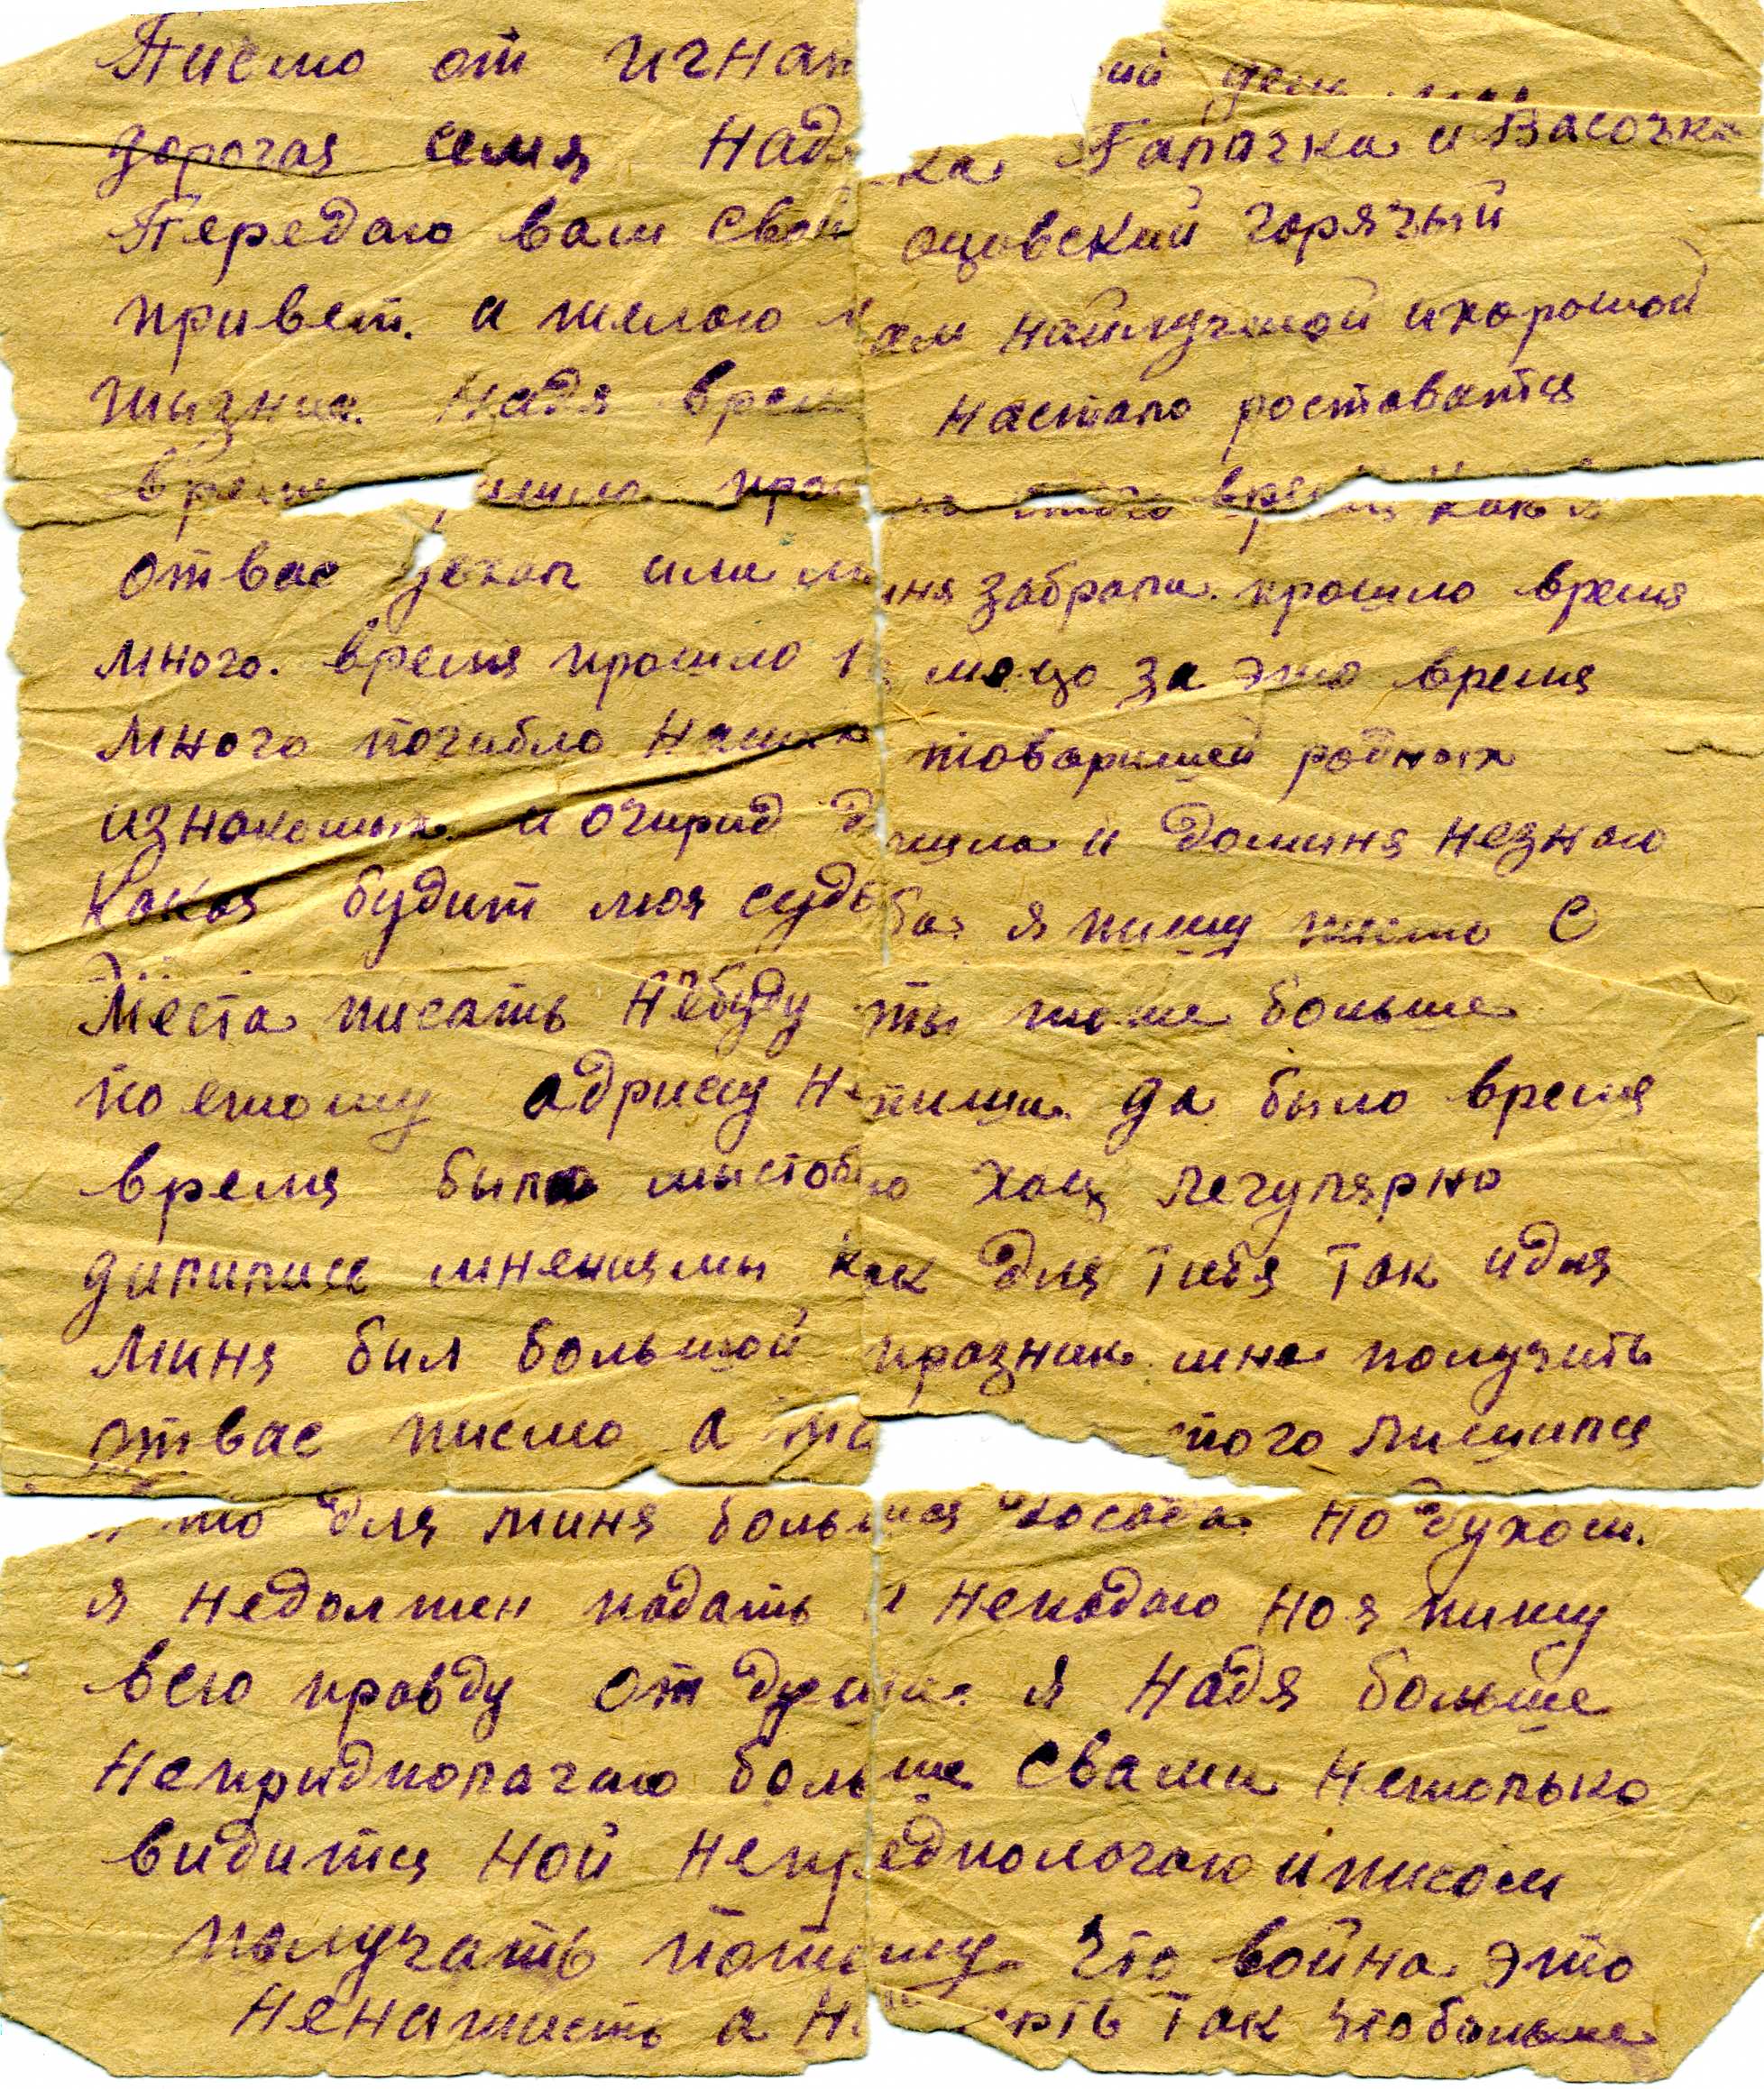 Писмо от Игнат ий ден моя
дорогая семя Надя ка Гапачка и Васочка
Передаю вам свой оцовский горячый
привет. и желаю вам найлучшой ихорошой
жизние. Надя врем настало роставатся
Время прошло этого время как я
отвас уехал или миня забрали. прошло время
много. время прошло меяцо за это время
много погибло наших товаришей родных
изнакомых. и очирид дошла и доминя незнаю
Какая будит моя судьбая я пишу писмо С
Места писать небуду ты тоже больше
поетому адрису непиши да было время
время была мыстобою хоц легулярно
дилилися мненияmы как для тибя так идля
миня бил большой празник мне получить
отвас писмо а того лишился
то для миня больная досада. но духом.
я недолжен падать и непадаю но я пишу
всю правду от души. я Надя больше
непридполагаю больше свами нетолько
видитця ной непредпологаю и писом
получать потому что война это
ненажисть а ерть так чтобольше